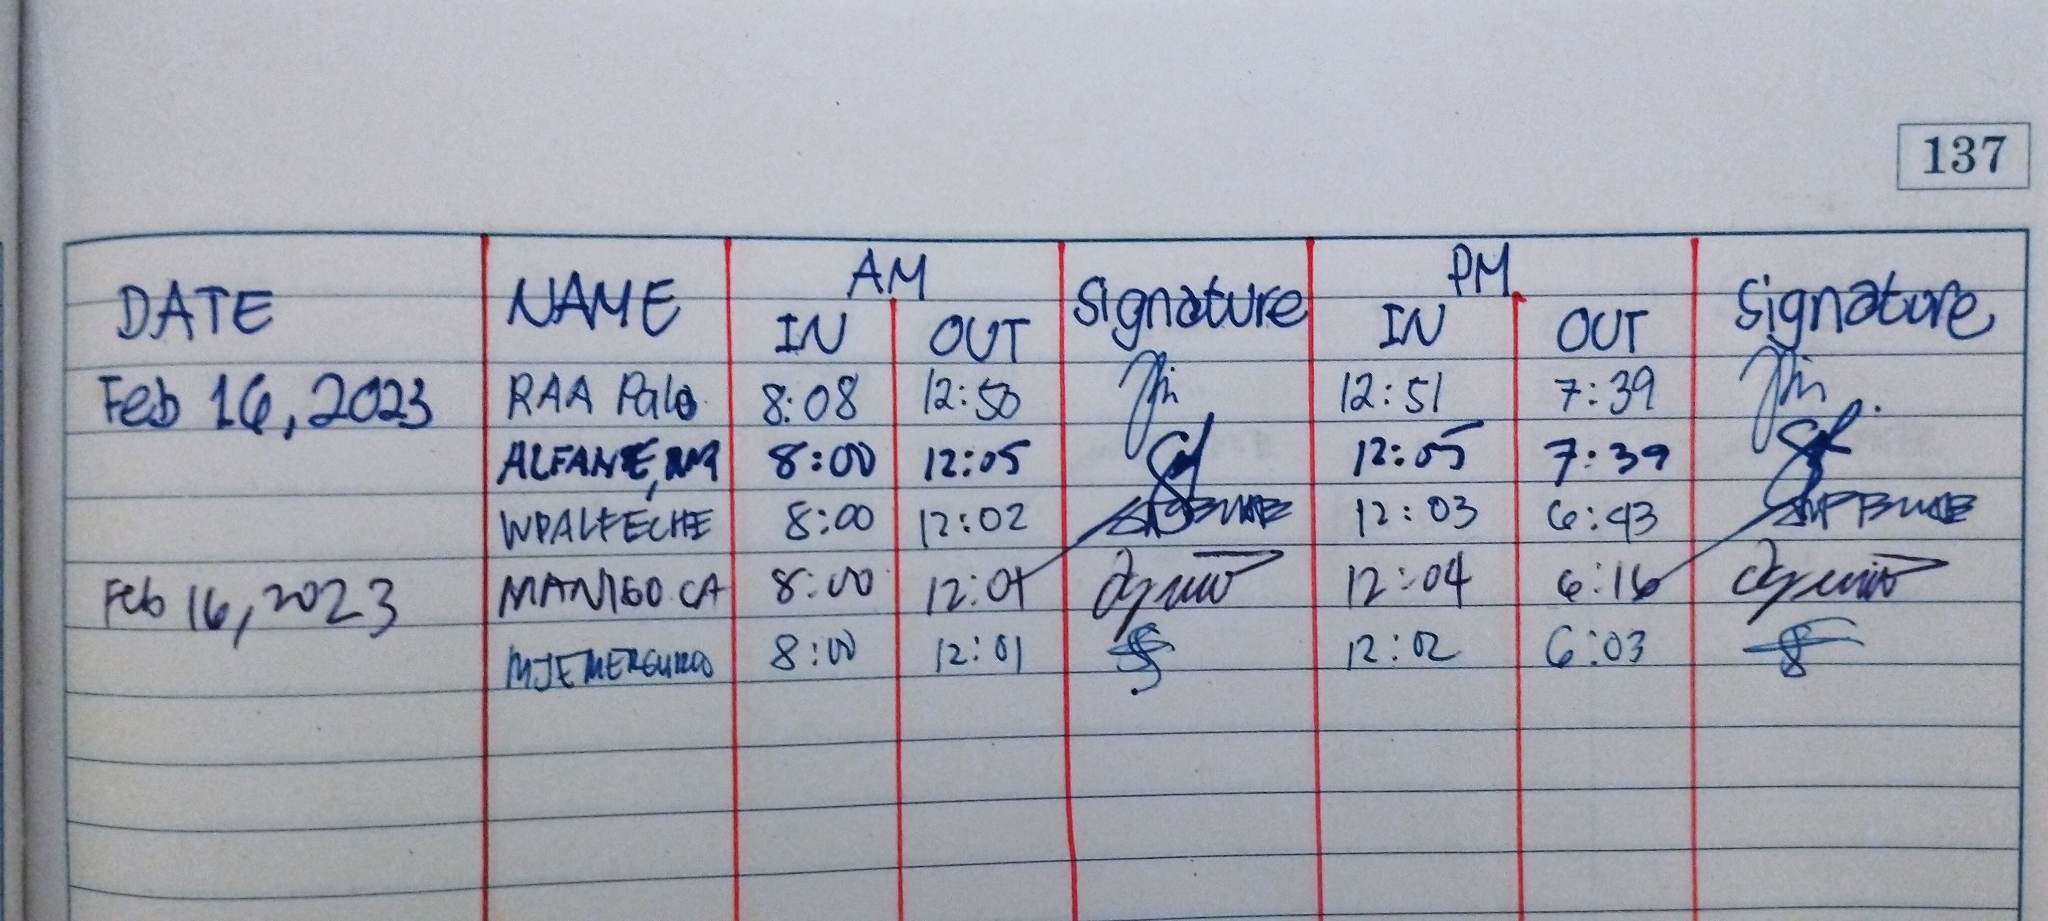 137
AM PM
DATE NAME IN OUT Signature IN OUT Signature
Feb 16, 2023 RAA Palo 8:08 12:50 12:51 7:39
ALFANE, 8:00 12:05 12:05 7:39
WPALFECHE 8:00 12:02 12:03 6:43
Feb 16, 2023 MANIGO CA 8:00 12:01 12:04 6:16
8:00 12:01 12:02 6:03